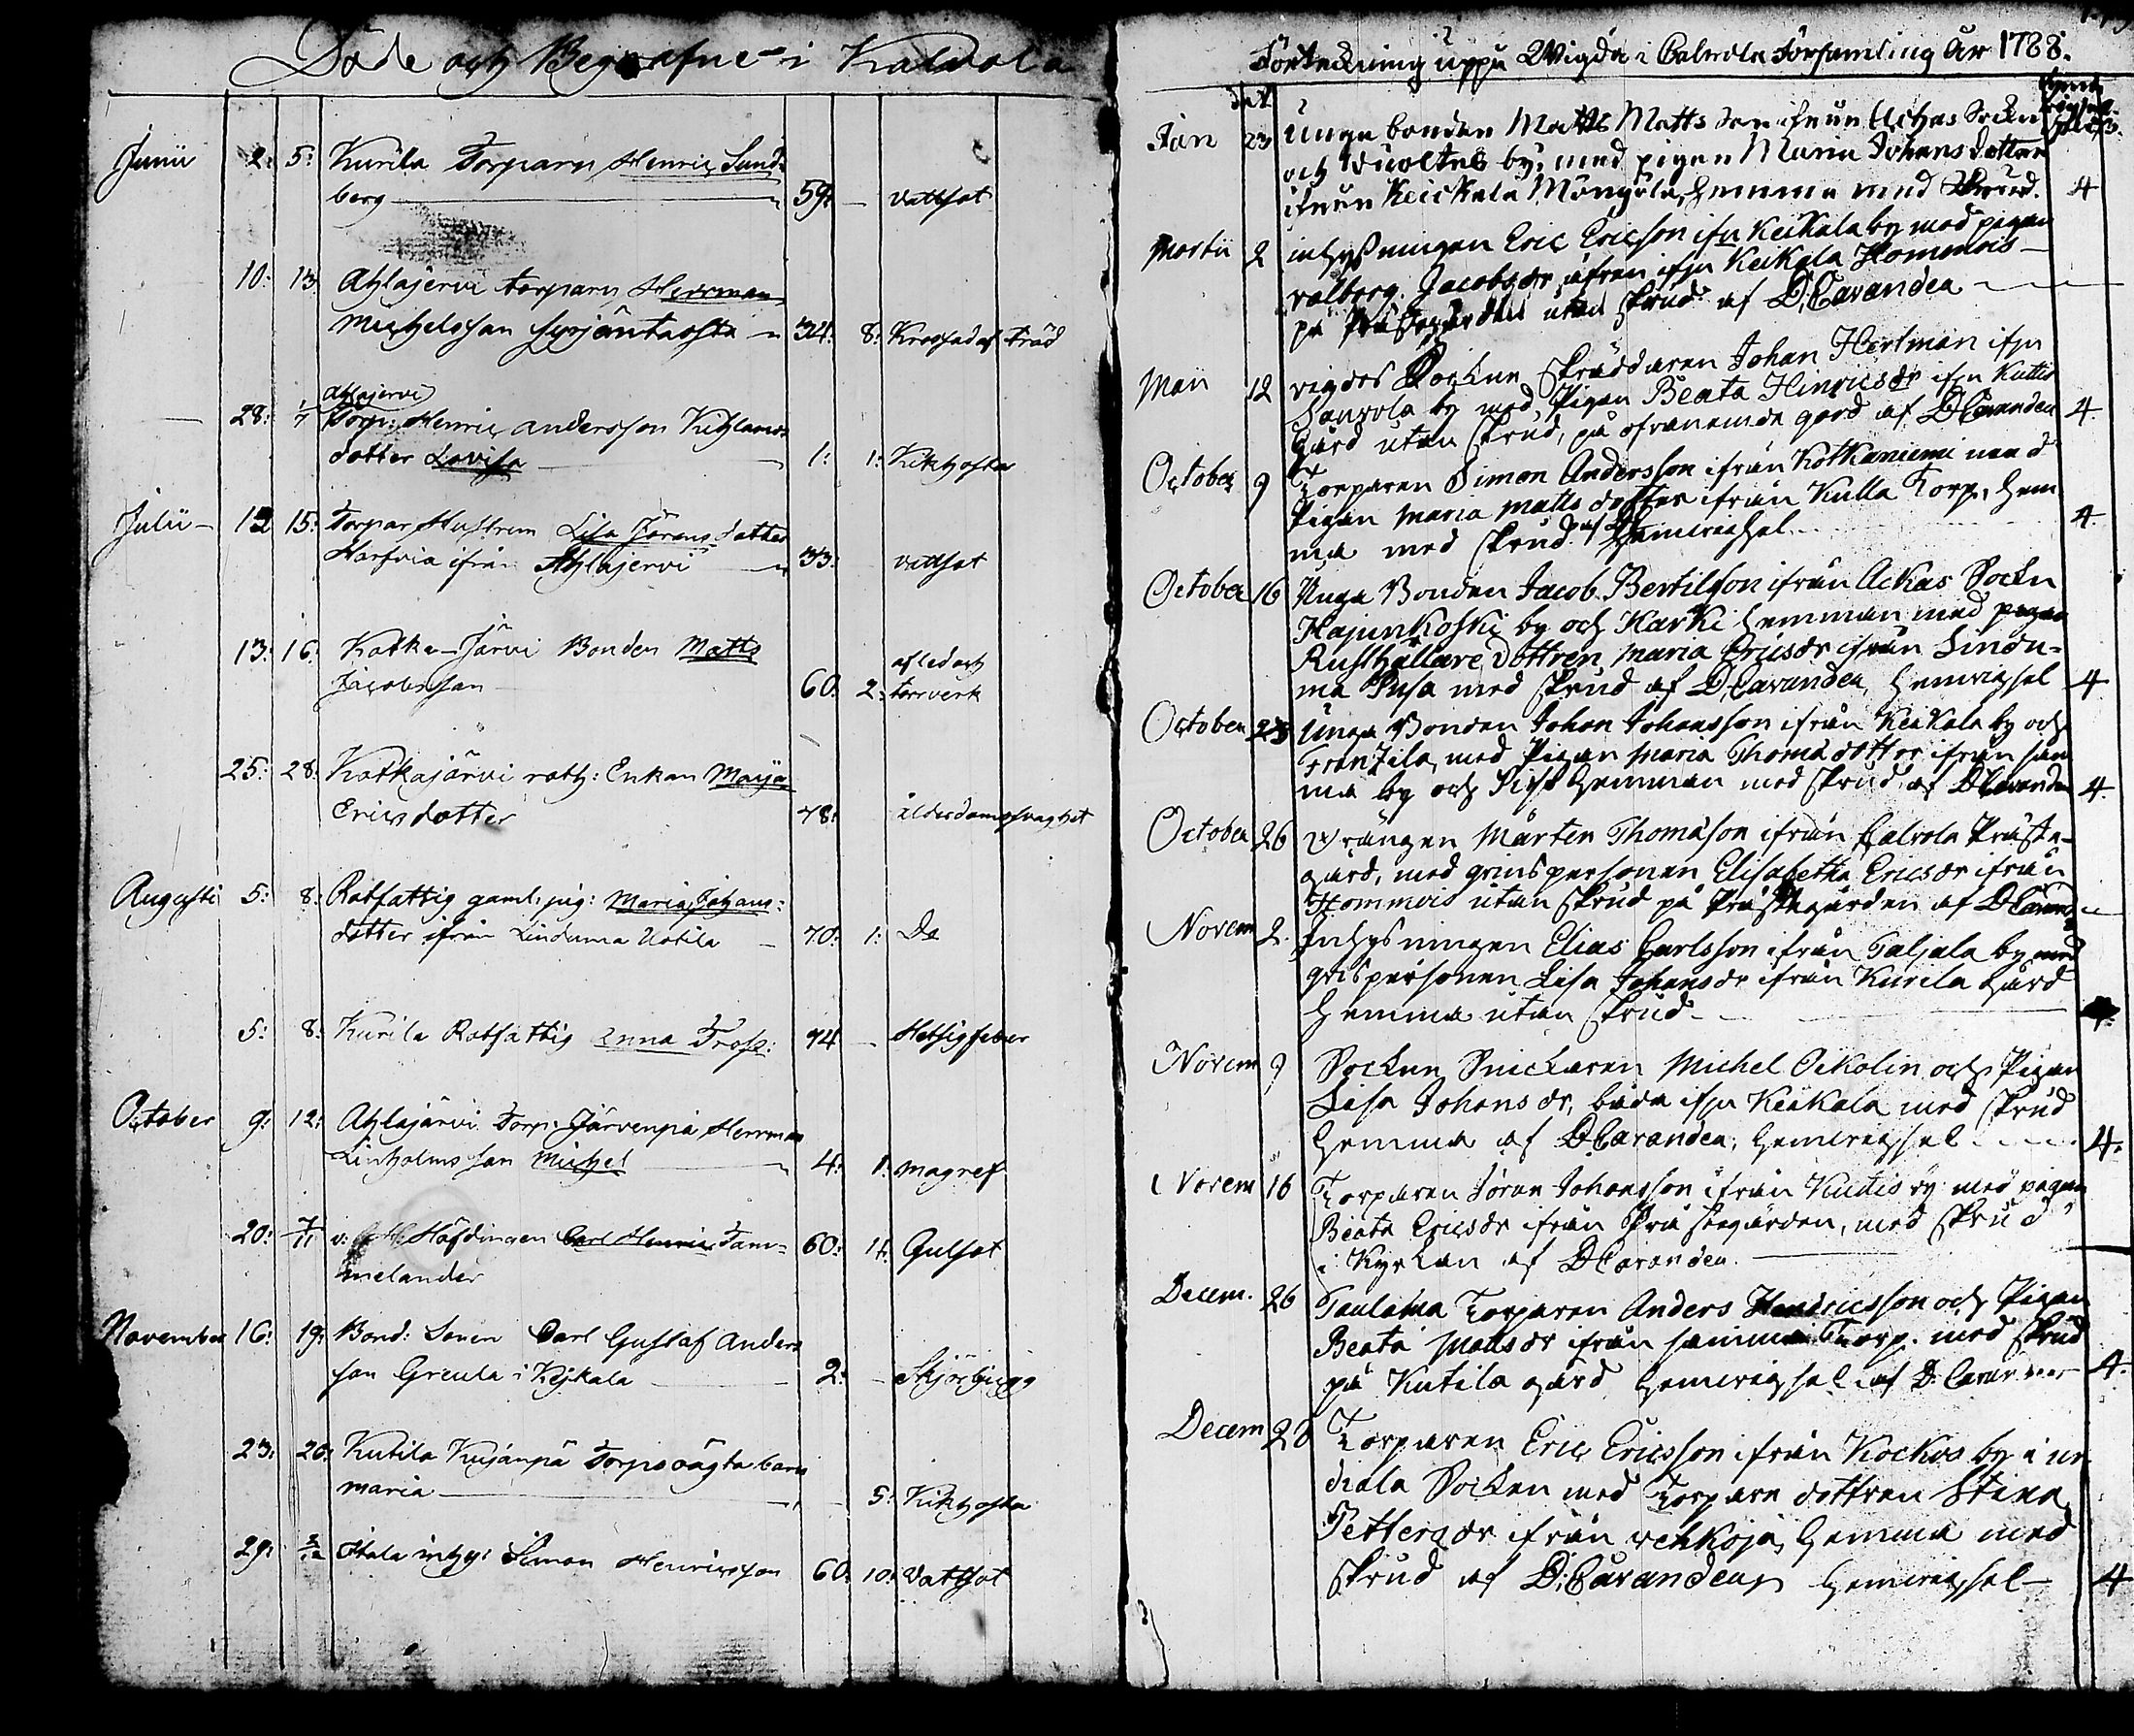 Döde och Begrafne i Kalvola
Junii 2: 5: Kurila Torparn Henric Sund-
berg 59: vattsot
10: 13 Ahlajervi torparn Herrman
Michelsson 34: 8: Krossad af träd
Ahlajervi
28: 1/7 Torp: Henric andersson Kihlanos
dotter Lovisa 1: 1: Kikhosta
Julii 12 15: Torpar Hustrun Lisa Jörans dotter
Harfvia ifrån Ahlajervi 33: vattsot
13: 16: Kotka-Järvi Bonden Matts
Jacobsson 60: 2: afled och torrverk
25: 28: Kotkajärvi roth: Enkan Marja
Ericsdotter 78: ålderdomssvaghet
Augusti 5: 8: Rotfattig gaml: pig: Maria Johans:
dotter ifrån Linduma Uotila 70: 1: Do
5: 8: Kurila Rotfattig Anna 74 Hetsigfeber
October 9: 12: Ahlajärvi Torp: Järvenpä Herrman
Linholms son Michel 4: 1: magref
20: 7/11 Höfdingen Carl Henric Tam=
melander 60: 4: Gulsot
November 16: 19: Bond: Sonen Carl Gustaf Anders
son Greula i Keikala 2: Skjörbjugg
23: 26: Kutila Kujanpä Torps oägta barn
maria 5: Kikhosta
29: 3/12 inhy: Simon Henricsson 60: 10: Vattsot
Förteckning uppå Wigda i Calvola Församling År 1788.
dat
Jan 23 Unga bonden Matts Matts Son ifrån Achas Sockn
och by, med pigan Maria Johans dotter
ifrån Keickala Mongola, hemma med Skrud. 4
Martii 2 inhysningen Eric Ericson ifn Keikala by med pigan
valborg Jacobsdr äfven ifrn Keikala Hommois
på Prästegården utan skrud af D: Cavandea
Maii 12 vigdes Socknen Skräddaren Johan Hertman ifrn
Sauvola by med Pigan Beata Hinricsdr ifrn Kuttis
gård utan skrud, på ofvanemde gård af DCavandea 4
October 9 Torparen Simon Andersson ifrån Kotkaniemi med
Pigan Maria matts dotter ifrån Kulla Torp, hem
ma med skrud hemvighsel 4
October 16 Unga Bonden Jacob Bertilsson ifrån Ackas Sockn
Hajunkoski by och Karki hemman med pigan
Rusthållare dottren Maria Ericsdr ifrån Lindu-
ma med skrud af D: Cavandea, hemvighsel 4
October 23 Unga Bonden Johan Johansson ifrån Keikala by och
Frantzila, med Pigan Maria Thomadotter ifrån sam
ma by och hemman med skrud af DCavandea 4
October 26 Drängen Mårten Thomasson ifrån Calvola Präste-
gård, med qvinspersonen Elisabetha Ericsdr ifrån
Hommois utan skrud på Prästegården af DCavand
Novem 2. Inhysningen Elias Carlsson ifrån Taljala by med
qvispersonen Lisa Johansdr ifrån Kurela gård
hemma utan skrud
Novem 9 Socknen Snickaren Michel Ackolin och Pigan
Lisa Johans dr, båda ifrn Keikala med skrud
hemma af DCavandea, hemvighsel 4.
Novem 16 Torparen Jöran Johansson ifrån Kuttis by med pigan
Beata Ericsdr ifrån Prästegården, med skrud
i Kyrkan af DCavandea
Decem. 26 Taulama Torparen Anders Hendricsson och Pigan
Beata Mattsdr ifrån samma Torp. med skrud
på Kutila gård hemvighsel af D: Cavandea 4.
Decem 28 Torparen Eric Ericsson ifrån Kockos by i ur
diala Socken med Torpare dottren Stina
Pettersdr ifrån rehkoja, hemma med
skrud af D: Cavandea, hemvighsel 4